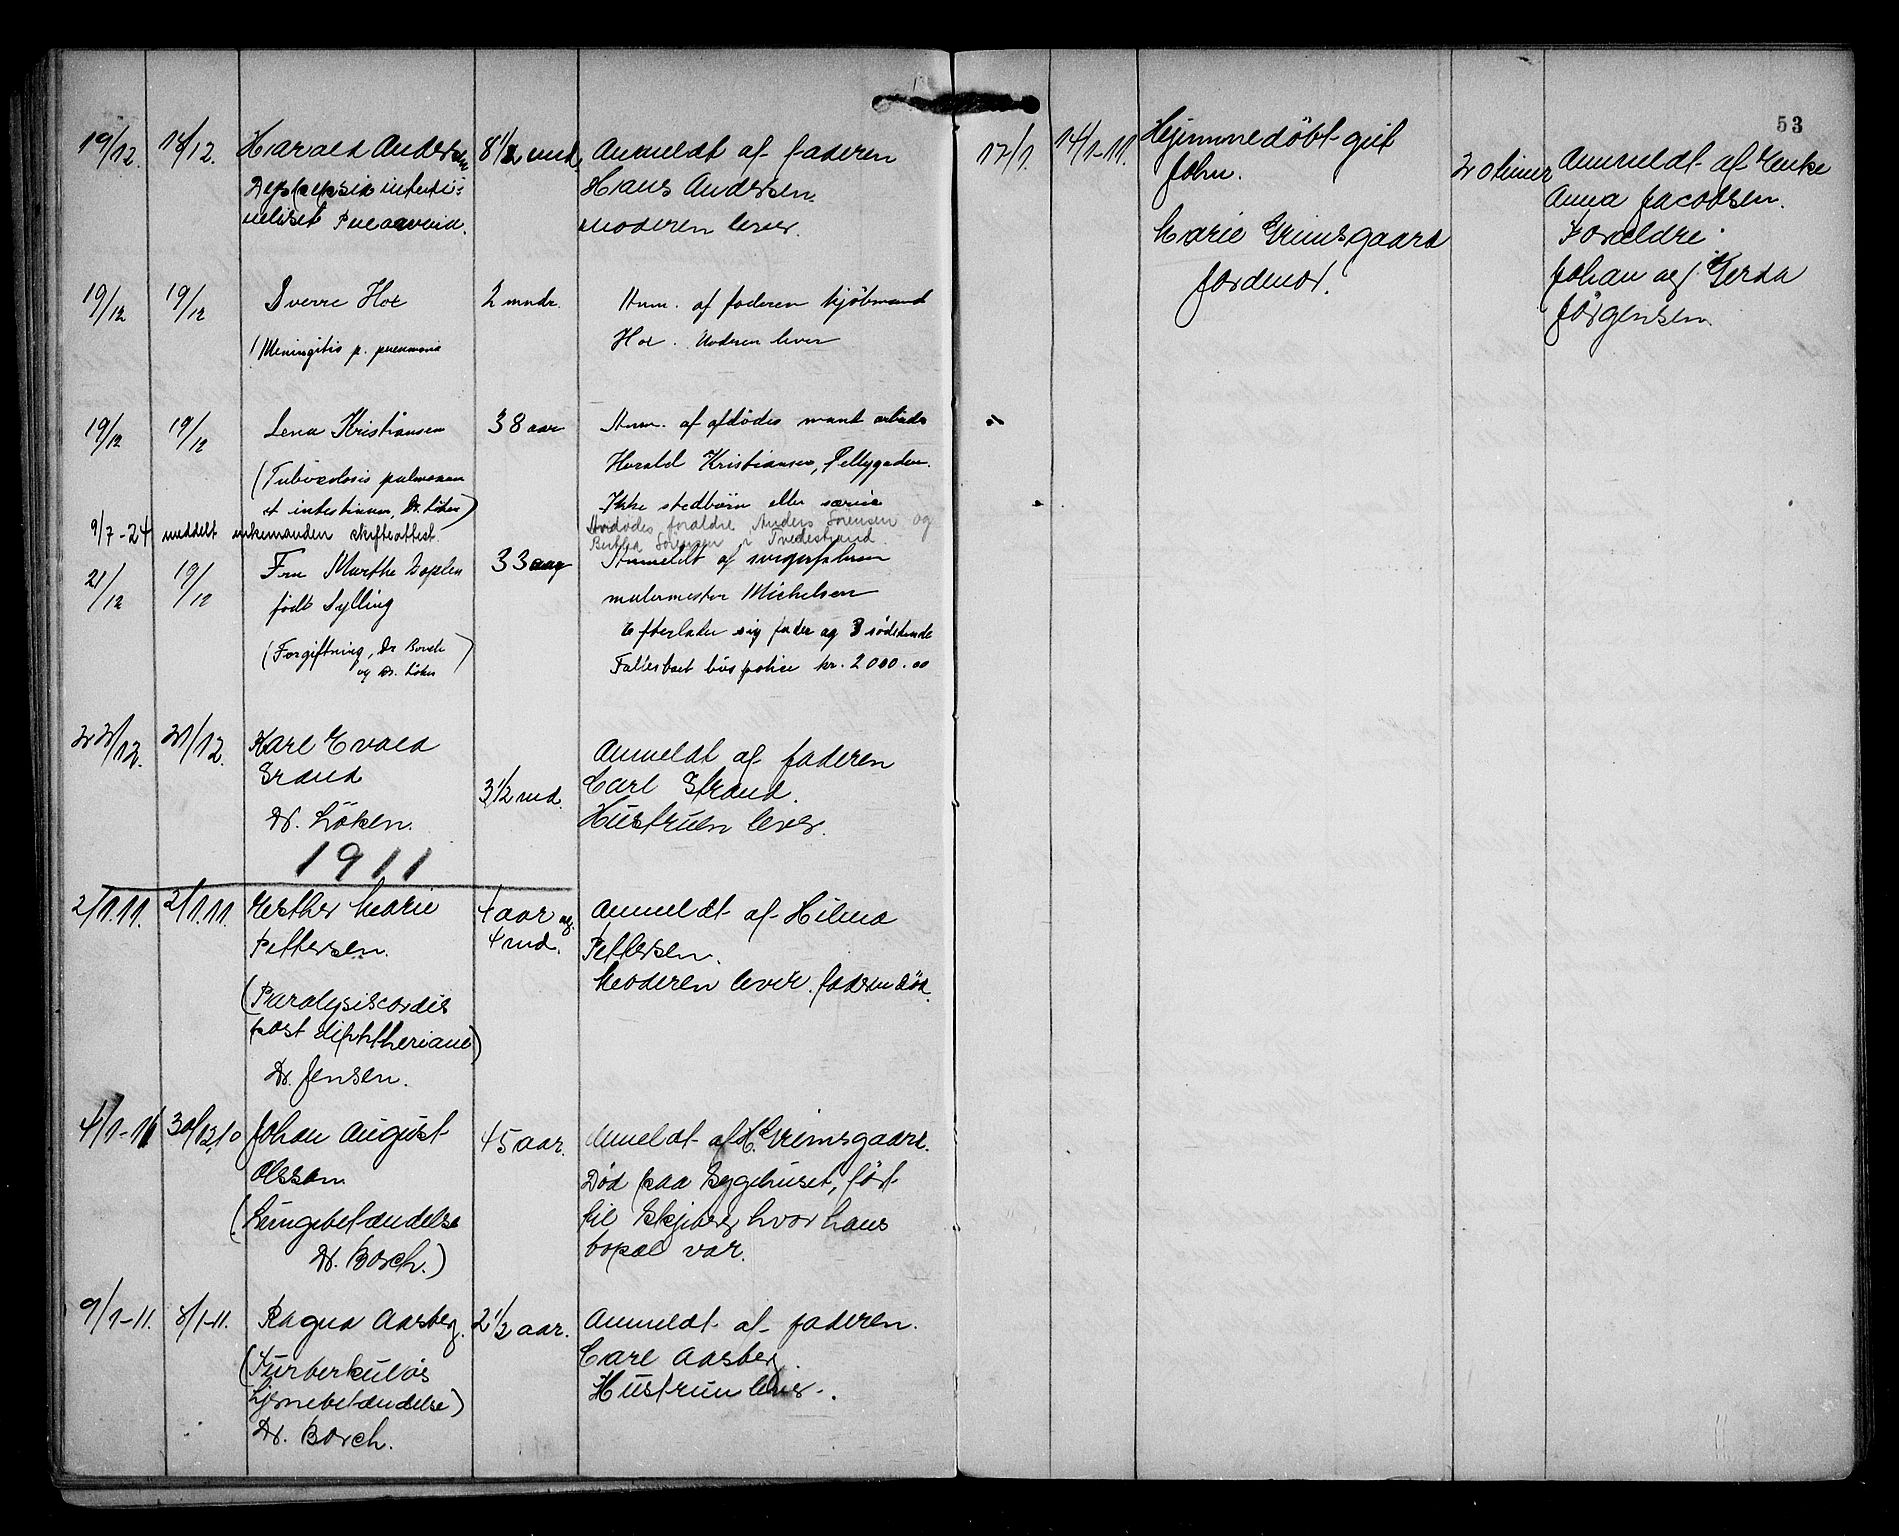 19/12. 18/12. Harald Andersen 8 1/2 mnd. Anmeldt af faderen
Hans Andersen.
Moderen lever.
19/12 19/12 Sverre Hoe 2 mndr. Anm. af faderen kjøbmand
(Meningitis p. pneumonia Hoe. Moderen lever
19/12 19/12 Lena Kristiansen 38 aar Anm. af afdødes mand arbeider
(Tuberculosis pulmonum Harald Kristiansen,
et intestinum, Dr. Løken) Ikke stedbørn eller særeie
Avdødes foraldre Anders Sørensen og
9/7-24 meddelt enkemanden skifteattest. Sørensen i Tvedestrand.
21/12 19/12 Fru Marthe 33 aar Anmeldt af svigerfaderen
født Sylling malermester Michelsen
Efterlader sig fader og 3 sødskende
(Forgiftning, Dr Borch
og Dr. Løken) livspolice kr. 2000.00
22/12. 21/12. Karl Evald Anmeldt af faderen
Strand 3 1/2 md. Carl Strand.
Dr. Løken. Hustruen lever.
1911
2/1.11. 2/1.11. Esther Marie 4 aar og Anmeldt af Hilma
Pettersen. 4 md. Pettersen.
Moderen lever. faderen død.
(Paralysis cordis
post diphtheriam)
Dr. Jensen.
4/1-11 30/12,10 Johan August 45 aar. Anmeldt af H. Grimsgaard.
Olsson Død paa Sygehuset, ført
(Lungebetændelse til Skjeberg hvor hans
Dr. Borch.) bopæl var.
9/1-11. 8/1-11. Ragna Aasberg. 2 1/2 aar. Anmeldt af faderen.
(Turberkuløs Carl Aasberg.
Hjernebetændelse) Hustruen lever.
Dr. Borch.
53
17/1. 14/1-11. Hjemmedøbt gut
John. 20 timer Anmeldt af Enke
Anna Jacobsen.
Marie Grimsgaard Foreldre:
Jordmor. Johan og Gerda
Jørgensen